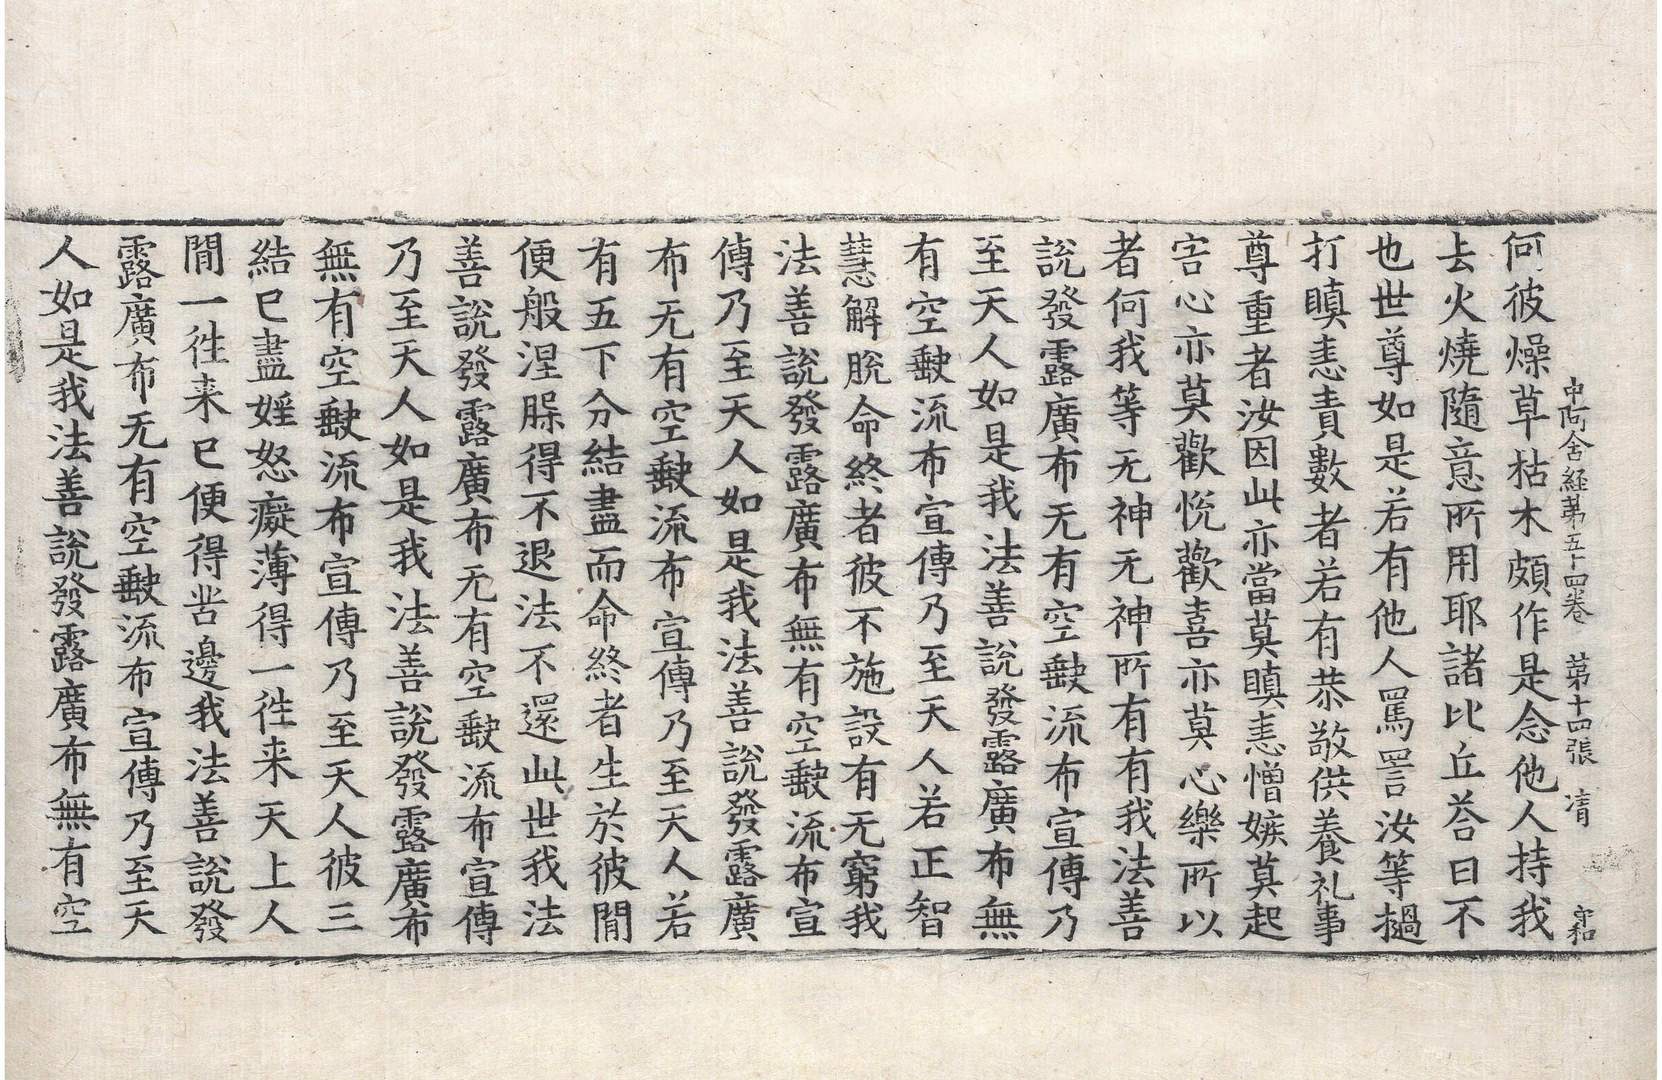 中阿含経苐五十四卷 苐十四張 凊 守和
何彼燥草枯木頗作是念他人持我
去火燒隨意所用耶諸比丘荅曰不
也世尊如是若有他人罵詈汝等撾
打瞋恚責數者若有恭敬供養礼事
尊重者汝因此亦當莫瞋恚憎嫉莫起
害心亦莫歡悅歡喜亦莫心樂所以
者何我等无神无神所有有我法善
說發露廣布无有空𡙇流布宣傳乃
至天人如是我法善說發露廣布無
有空𡙇流布宣傳乃至天人若正智
慧解脫命終者彼不施設有无窮我
法善說發露廣布無有空𡙇流布宣
傳乃至天人如是我法善說發露廣
布无有空𡙇流布宣傳乃至天人若
有五下分結盡而命終者生於彼閒
便般涅槃得不退法不還此世我法
善說發露廣布无有空𡙇流布宣傳
乃至天人如是我法善說發露廣布
無有空𡙇流布宣傳乃至天人彼三
結已盡婬怒癡薄得一往来天上人
閒一往来已便得苦邊我法善說發
露廣布无有空𡙇流布宣傳乃至天
人如是我法善說發露廣布無有空